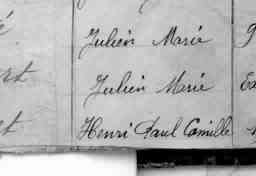 Julien Marie
Julien Marie
Henri Paul Camille